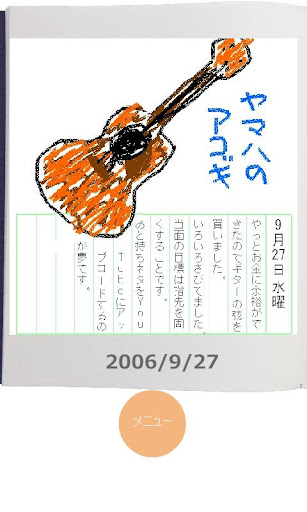 ヤマハの
アコギ
9月27日 水曜
やっとお金に余裕がで
きたのでギターの弦を
買いました。
いろいろさびてました。
当面の目標は指先を固
くすることです。
あと持ちネタをYou
Tubeにアッ
プロードするの
が夢です。
2006/9/27
メニュー